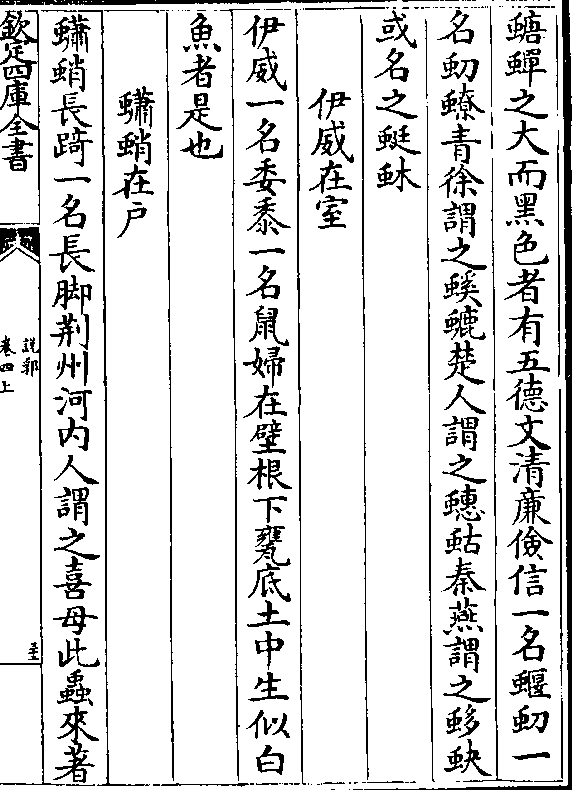 螗蟬之大而黑色者有五德文清廉儉信一名蝘虭一
名虭蟟青徐謂之螇螰楚人謂之蟪蛄秦燕謂之蛥蚗
或名之蜓蚞
伊威在室
伊威一名委黍一名鼠婦在壁根下甕底土中生似白
魚者是也
蠨蛸在户
蠨蛸長踦一名長脚荆州河内人謂之喜母此蟲來著
欽定四庫全書
説郛
卷四上